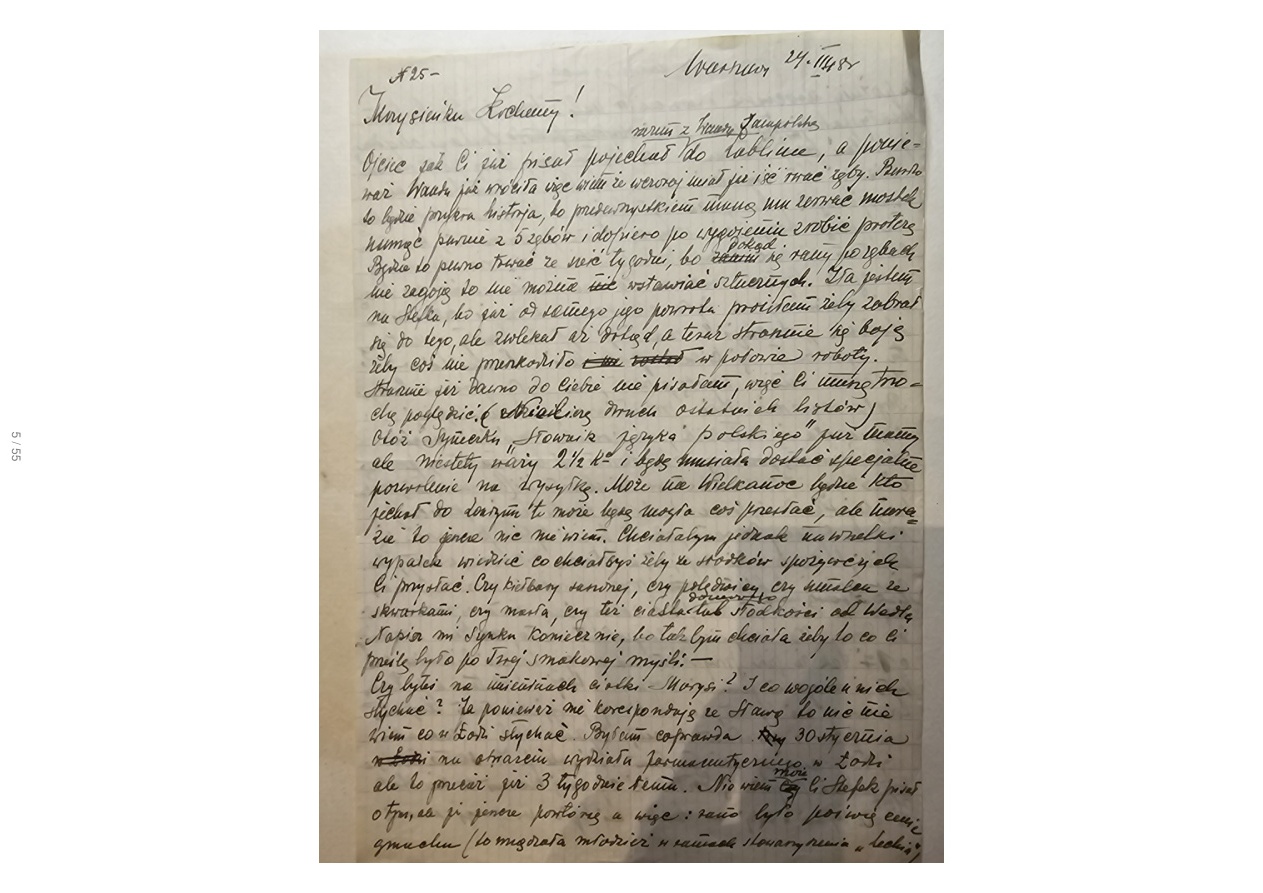 N 25 –
Warszawa 24. III 48 r
Morysieńku Kochany!
razem z Wandą Zarapolską
Ojciec jak Ci już pisał pojechał do Lublina, a ponie-
waż Wanda już wróciła więc wiem że wczoraj miał już iść rwać zęby. Bardzo
to będzie przykra historja, bo przedewszystkiem muszą mu zerwać mostek
numąć pewnie z 5 zębów i dopiero po wygojeniu zrobić protezę
Będzie to pewno trwać ze sześć tygodni, bo dokąd się rany po zębach
nie zagoją to nie można wstawiać sztucznych. Zła jestem
na Stefka, bo już od samego jego powrotu prosiłam żeby zabrał
się do tego, ale zwlekał aż dotąd, a teraz strasznie się boję
żeby coś nie przeszkodziło w połowie roboty.
Strasznie już dawno do Ciebie nie pisałam, więc Ci muszę tro-
chę poględzić. ( dwuch ostatnich listów)
Otóż Syneczku „Słownik języka polskiego" już mamy
ale niestety waży 2½ Kg i będę musiała dostać specjalne
pozwolenie na wysyłkę. Może na Wielkanoc będzie kto
jechał do Londynu to może będę mogła coś przesłać, ale nara-
zie to jeszcze nic nie wiem. Chciałabym jednak na wszelki
wypadek wiedzieć co chciałbyś żeby ze środków spożywczych
Ci przysłać. Czy kiełbasy suszonej, czy polędwicy, czy smalcu ze
skwarkami, czy masła, czy też ciasta domowego lub słodkości od Wedla
Napisz mi Synku koniecznie, bo tak bym chciała żeby to co Ci
prześlę było po Twej smakowej myśli. —
Czy byłeś na imieninach ciotki Marysi? I co wogóle u nich
słychać? Ja ponieważ nie koresponduję ze Sławą to nic nie
wiem co w Łodzi słychać. Byłam coprawda 30 stycznia
na otwarciu wydziału farmaceutycznego w Łodzi
ale to przecież już 3 tygodnie temu. Nie wiem może Ci Stefek pisał
o tym, ale ja jeszcze powtórzę a więc: rano było poświęcenie
gmachu (to urządzała młodzież w ramach stowarzyszenia „Lechia")